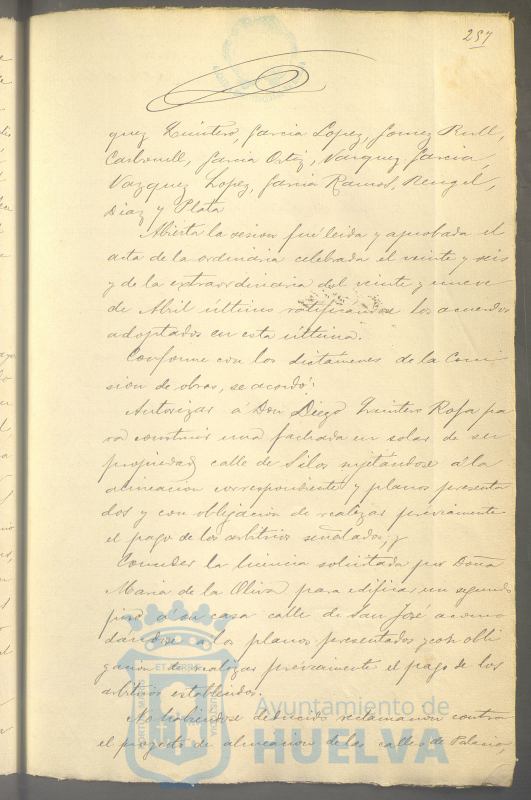 257
quez Quintero, Garcia Lopez, Gomez Rull,
Carbonell, Garcia Ortiz, Vazquez Garcia,
Vazquez Lopez, Garcia Ramos, Rengel,
Diaz y Plata
Abierta la sesion fué leida y aprobada el
acta de la ordinaria celebrada el veinte y seis
y de la extraordinaria del veinte y nueve
de Abril último ratificandose los acuerdos
adoptados en esta última.
Conforme con los dictámenes de la Comi
sion de obras, se acordó:
Autorizar á Don Diego Quintero Rofa pa
ra construir una fachada en solar de su
propiedad calle de Silos sujetándose á la
alineacion correspondiente y planos presenta
dos y con obligacion de realizar préviamente
el pago de los arbitrios señalados, y
Conceder la licencia solicitada por Doña
Maria de la Oliva para edificar un segundo
piso á su casa calle de San José acomo
dándose a los planos presentados y con obli
gacion de realizar préviamente el pago de los
arbitrios establecidos.
No habiendose deducido reclamacion contra
el proyecto de alineacion de las calles de Palacio
Ayuntamiento de
HUELVA